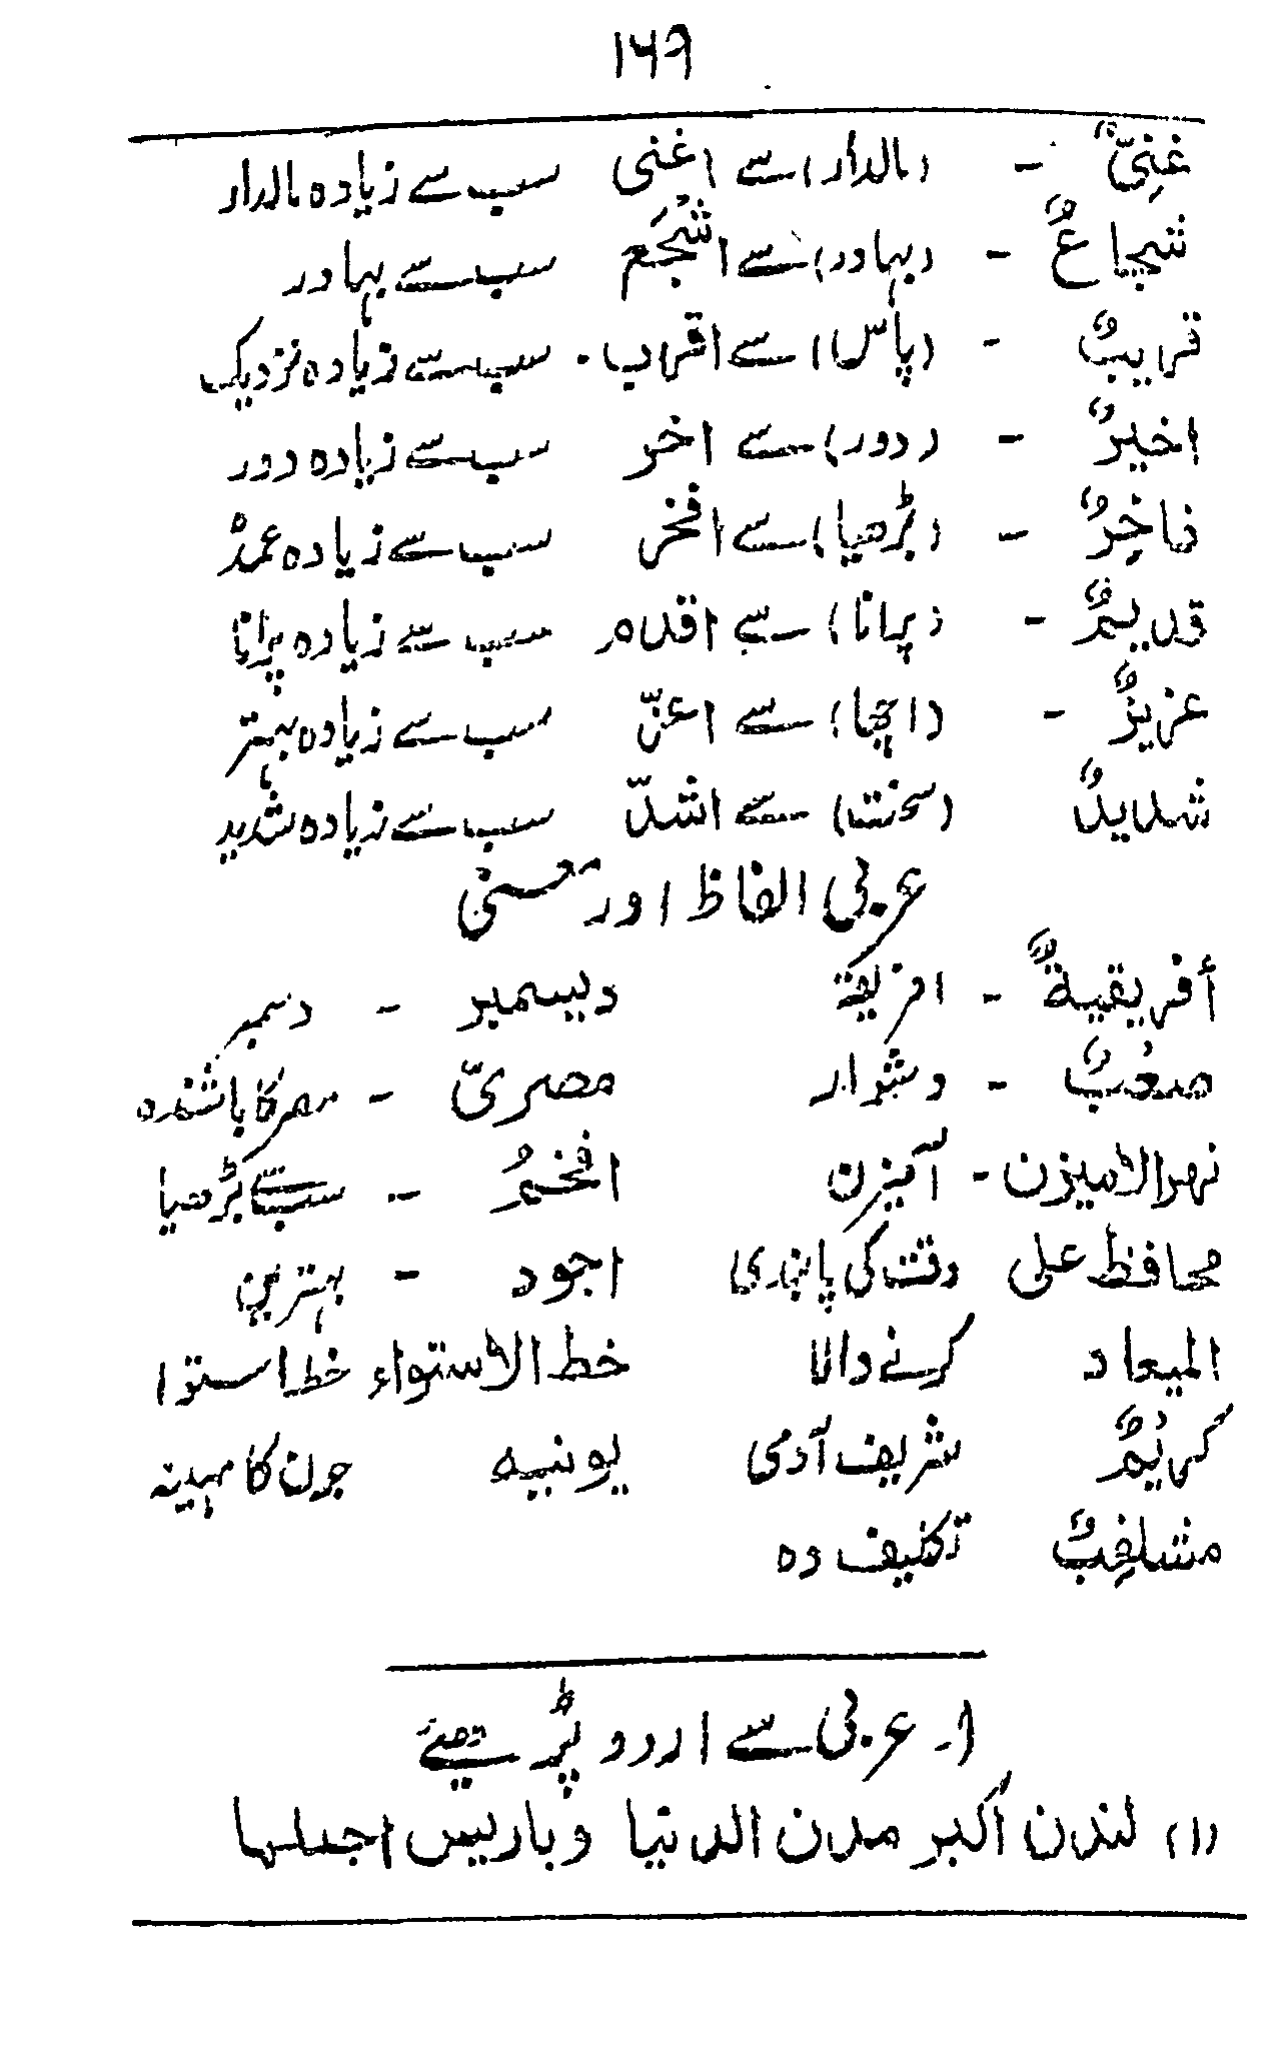 ۱۶۹
غنِیٌّ - (مالدار) سے اغنی سب سے زیادہ مالدار
شجاعٌ - (بہادر) سے اشجَع سب سے بہادر
قریبٌ - (پاس) سے اقرب . سب سے زیادہ نزدیک
اخیرٌ - (دور) سے اخر سب سے زیادہ دور
فاخِرٌ - (بڑھیا) سے افخر سب سے زیادہ عمدہ
قدیمٌ - (پرانا) سے اقدم سب سے زیادہ پرانا
عزیزٌ - (اچھا) سے اعزّ سب سے زیادہ بہتر
شدیدٌ (سخت) سے اشدّ سب سے زیادہ شدید
عربی الفاظ اور معنی
أفریقیةٌ - افریقہ دیسمبر - دسمبر
صعُبٌ - دشوار مصریّ - مصر کا باشندہ
نھرالأمیزن - آمیزن افخمُ - سب سے بڑھیا
محافظ علی وقت کی پابندی اجود - بہترین
المیعاد کرنے والا خط الأستواء خط استوا
کریُمٌ شریف آدمی یونیہ جون کا مہینہ
مشلفِبٌ تکلیف دہ
۱۔ عربی سے اردو پڑھیئے
(۱) لندن أکبر مدن الدنیا وباریس اجملھا